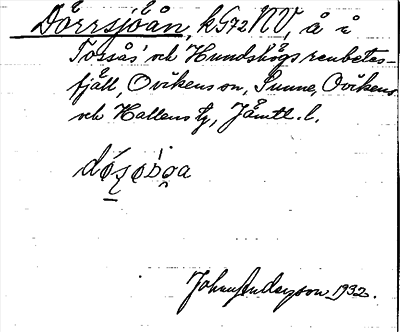 Dörrsjöån, k G72 NV, å i
Tossås' och Hundshögs renbetes-
fjäll, Ovikens sn, Sunne, Ovikens
och Hallens tg, Jämtl. l.
Johan Anderson 1932.